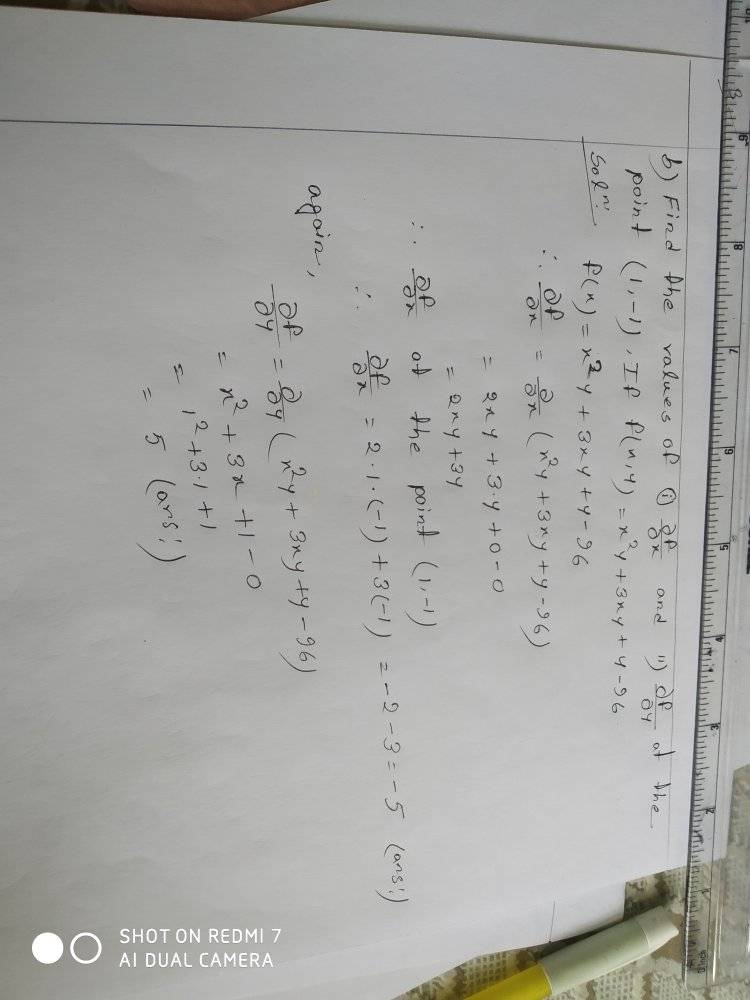 b) Find the values of (i) ∂f/∂x and ii) ∂f/∂y at the
point (1,-1), If f(x,y) = x²y + 3xy + y - 96
Solⁿ:
f(x) = x²y + 3xy + y - 96
∴ ∂f/∂x = ∂/∂x (x²y + 3xy + y - 96)
= 2xy + 3·y + 0 - 0
= 2xy + 3y
∴ ∂f/∂x at the point (1,-1)
∴ ∂f/∂x = 2·1·(-1) + 3(-1) = -2 - 3 = -5 (ans:)
again,
∂f/∂y = ∂/∂y (x²y + 3xy + y - 96)
= x² + 3x + 1 - 0
= 1² + 3·1 + 1
= 5 (ans:)
SHOT ON REDMI 7
AI DUAL CAMERA
9 8 7 6 5 4 3 2 1